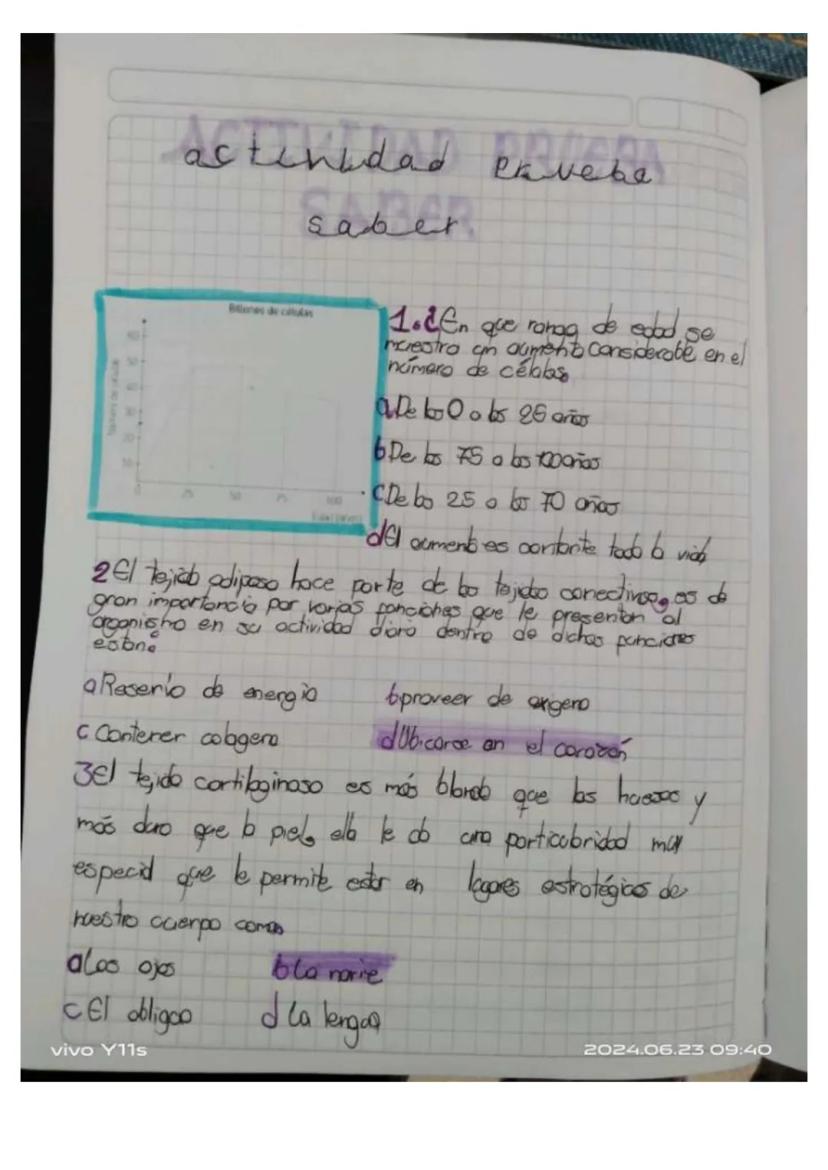 actividad prueba
saber
Billones de células
60
50
40
30
20
10
0 25 50 75 100
Edad (años)
1. ¿En que rango de edad se
muestra un aumento considerable en el
número de células
a De los 0 a los 25 años
b De los 75 a los 100 años
c De los 25 a los 70 años
d El aumento es constante toda la vida
2 El tejido adiposo hace parte de los tejidos conectivos, es de
gran importancia por varias funciones que le presentan al
organismo en su actividad diaria dentro de dichas funciones
están:
a Reserva de energia b proveer de oxigeno
c Contener colageno d Ubicarse en el corazón
3 El tejido cartilaginoso es más blando que los huesos y
más duro que la piel, ello le da una particularidad muy
especial que le permite estar en lugares estratégicos de
nuestro cuerpo como
a Los ojos b La nariz
c El obligao d La lengua
vivo Y11s 2024.06.23 09:40